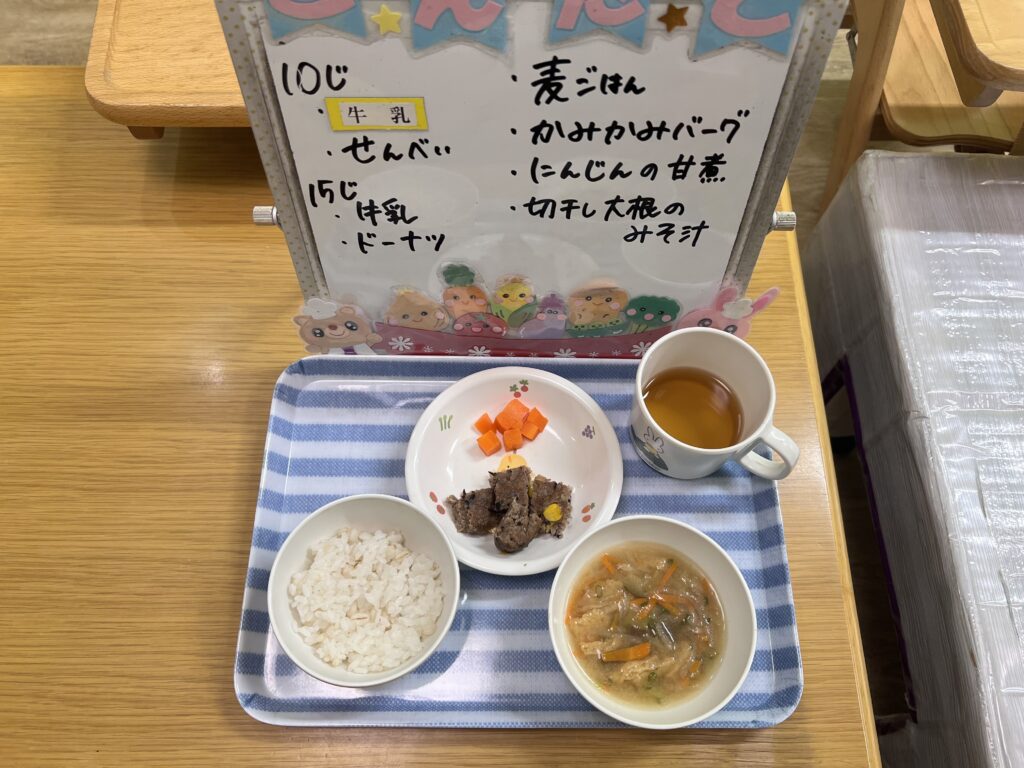 こんだて
10じ
・牛乳
・せんべい
15じ
・牛乳
・ドーナツ
・麦ごはん
・かみかみバーグ
・にんじんの甘煮
・切干し大根の
みそ汁